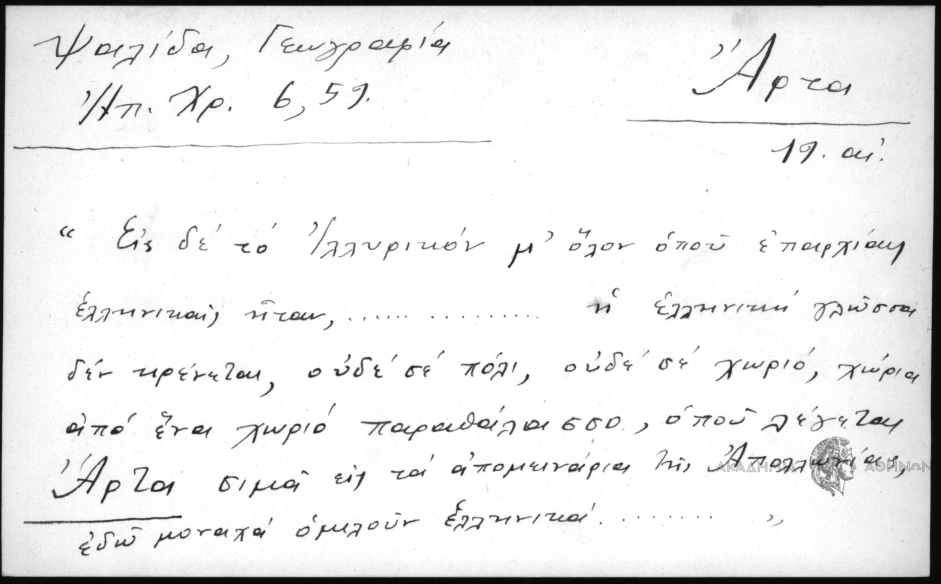 Ψαλίδα, Γεωγραφία
Ἠπ. Χρ. 6, 59.
Ἄρτα
19. αἰ.
“ Εἰς δέ τό Ἰλλυρικόν μ' ὅλον ὁποῦ ἐπαρχίαις
ἑλληνικαῖς ἦταν, ...... ......... ἡ ἑλληνική γλῶσσα
δέν κρένεται, οὐδέ σέ πόλι, οὐδέ σέ χωριό, χώρια
ἀπό ἕνα χωριό παραθάλασσο, ὁποῦ λέγεται
Ἄρτα σιμά εἰς τά ἀπομεινάρια τῆς Ἀπολλωνίας,
ἐδῶ μοναχά ὁμιλοῦν ἑλληνικά. ........ „
ΑΚΑΔΗΜΙΑ ΑΘΗΝΩΝ